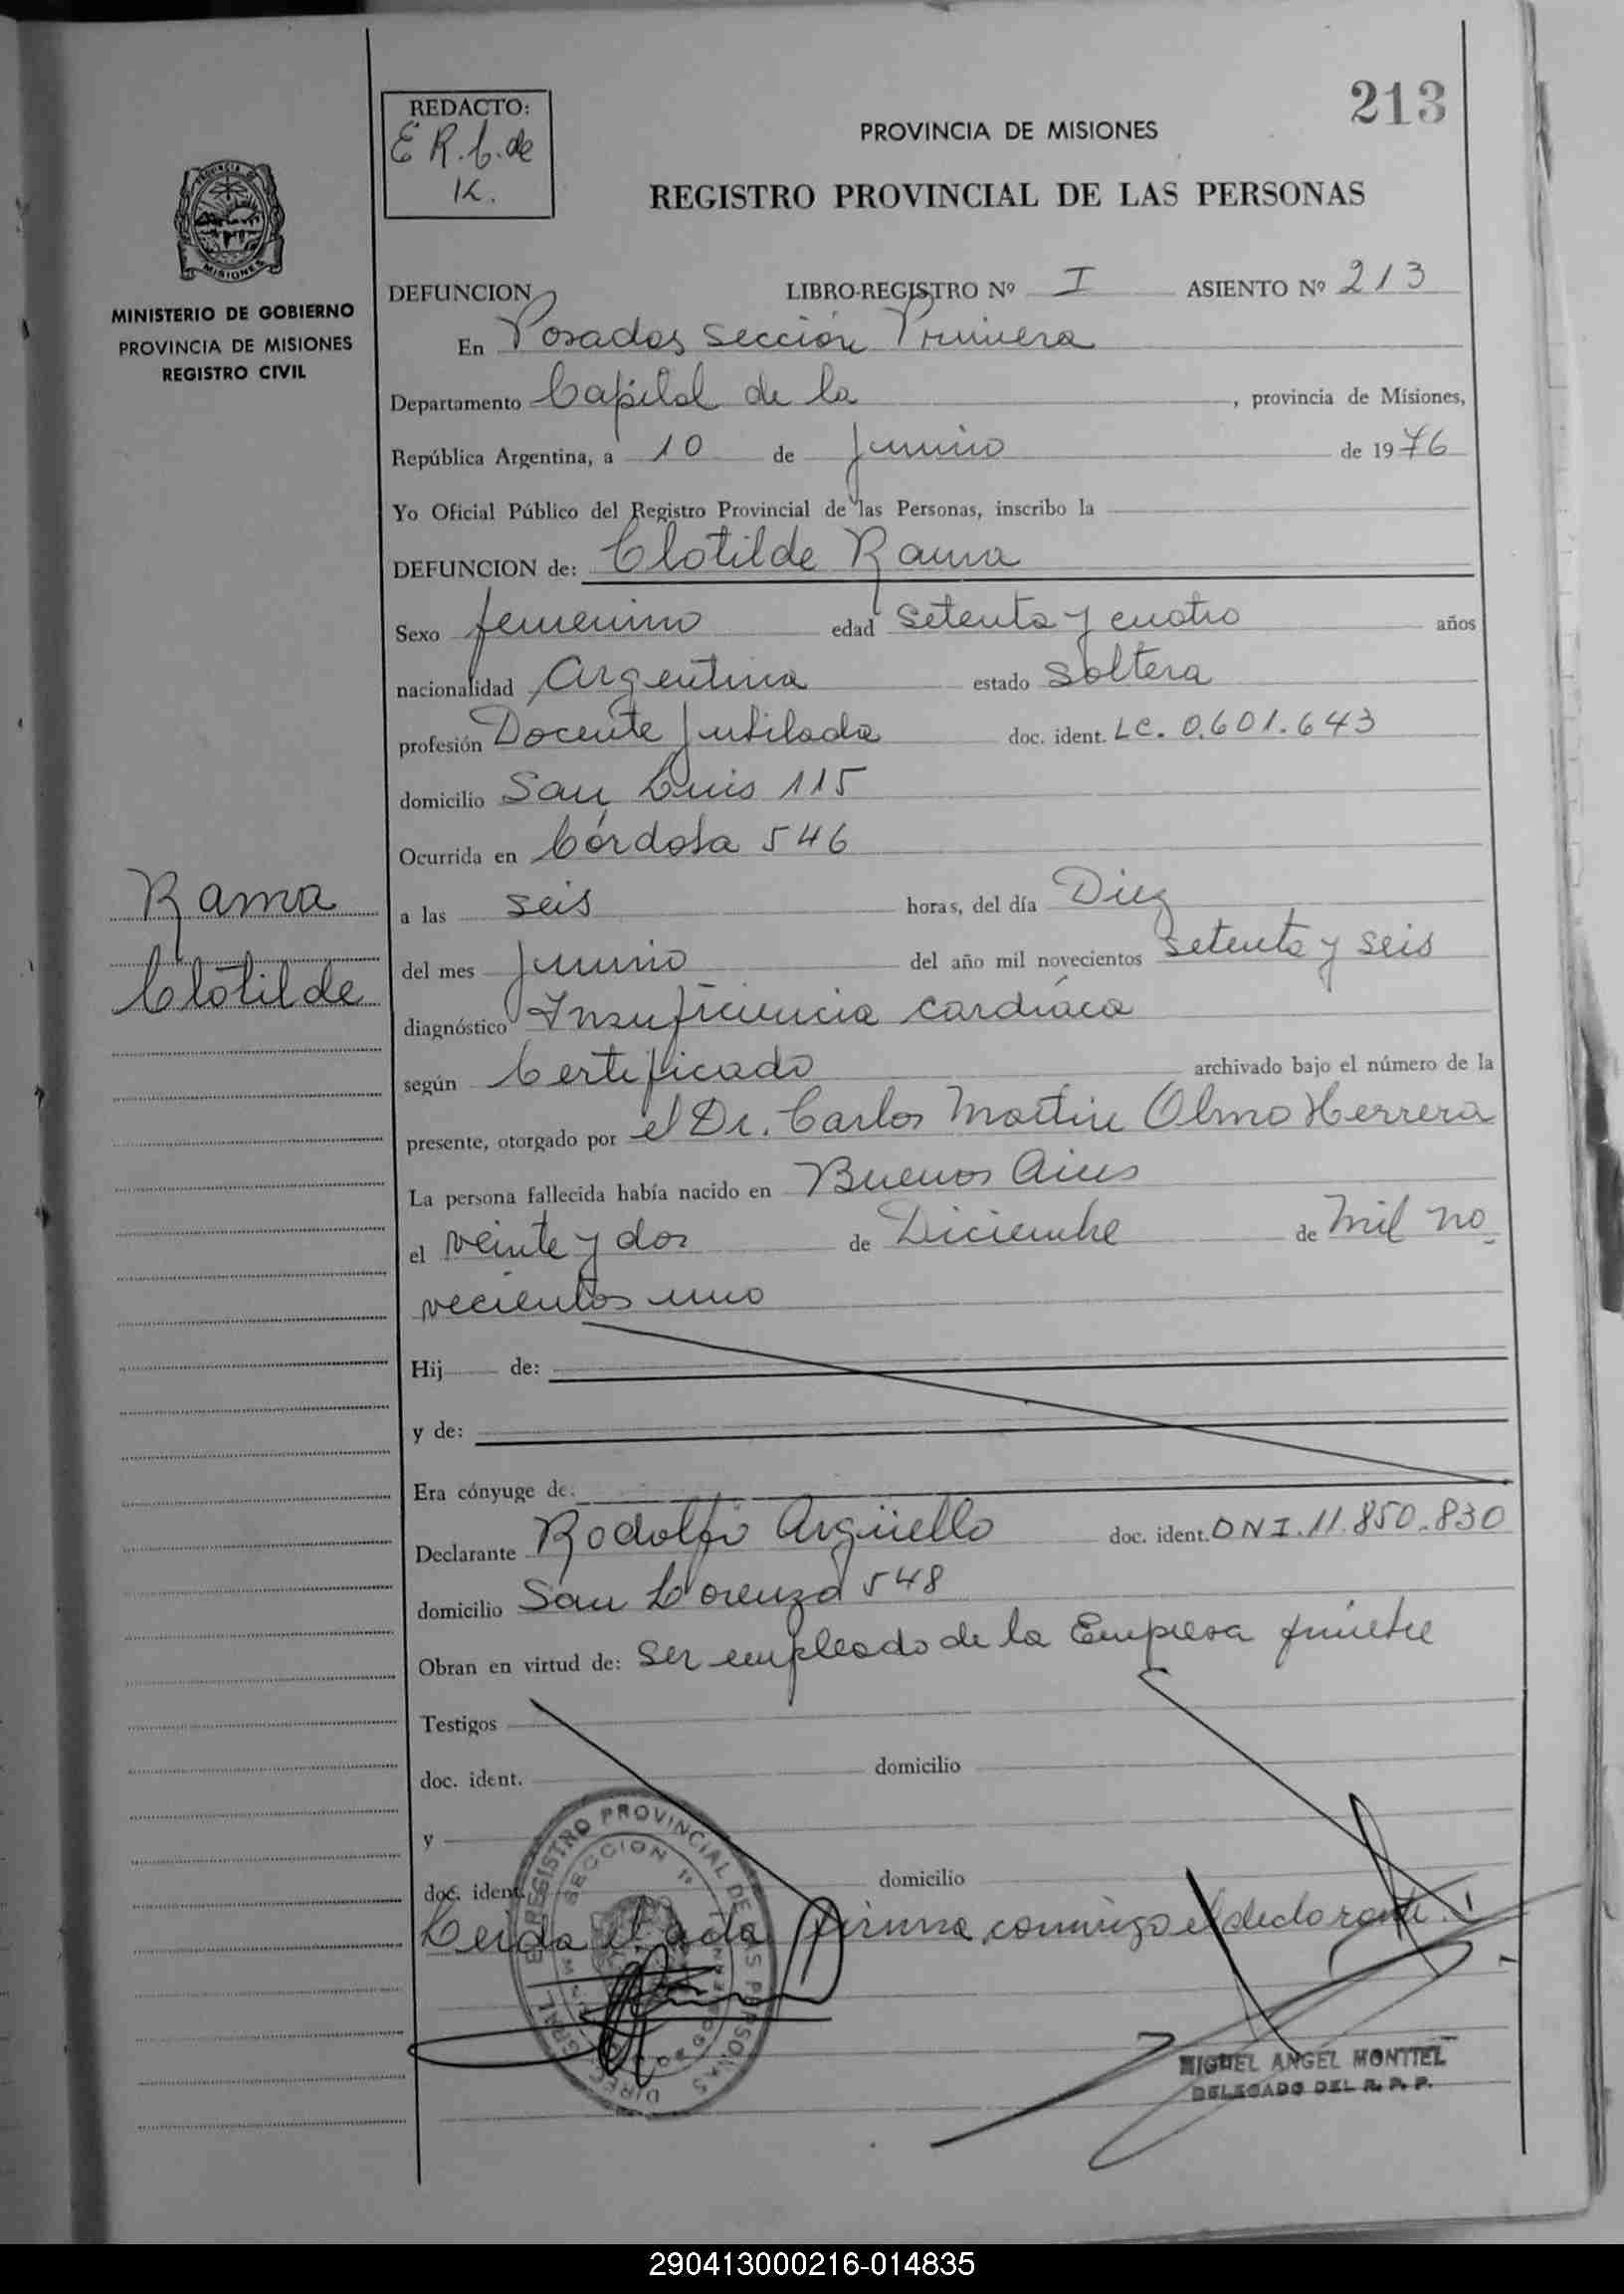 213
REDACTO:
E R. C. de
K.
PROVINCIA DE MISIONES
REGISTRO PROVINCIAL DE LAS PERSONAS
PROVINCIA DE
MISIONES
MINISTERIO DE GOBIERNO
PROVINCIA DE MISIONES
REGISTRO CIVIL
DEFUNCION LIBRO-REGISTRO Nº I ASIENTO Nº 213
En Posadas Sección Primera
Departamento Capital de la , provincia de Misiones,
República Argentina, a 10 de Junio de 1976
Yo Oficial Público del Registro Provincial de las Personas, inscribo la
DEFUNCION de: Clotilde Rama
Sexo femenino edad setenta y cuatro años
nacionalidad Argentina estado soltera
profesión Docente Jubilada doc. ident. LC. 0.601.643
domicilio San Luis 115
Ocurrida en Córdoba 546
Rama
Clotilde
a las seis horas, del día Diez
del mes Junio del año mil novecientos setenta y seis
diagnóstico Insuficiencia cardíaca
según Certificado archivado bajo el número de la
presente, otorgado por el Dr. Carlos Martin Olmo Herrera
La persona fallecida había nacido en Buenos Aires
el veinte y dos de Diciembre de mil no
vecientos uno
Hij de:
y de:
Era cónyuge de:
Declarante Rodolfo Argüello doc. ident. DNI. 11.850.830
domicilio San Lorenzo 548
Obran en virtud de: Ser empleado de la Empresa fúnebre
Testigos
doc. ident. domicilio
y
doc. ident. domicilio
Leída el acta firma conmigo el declarante.
REGISTRO PROVINCIAL DE LAS PERSONAS
SECCION 1ª
MIGUEL ANGEL MONTIEL
DELEGADO DEL R. P. P.
290413000216-014835